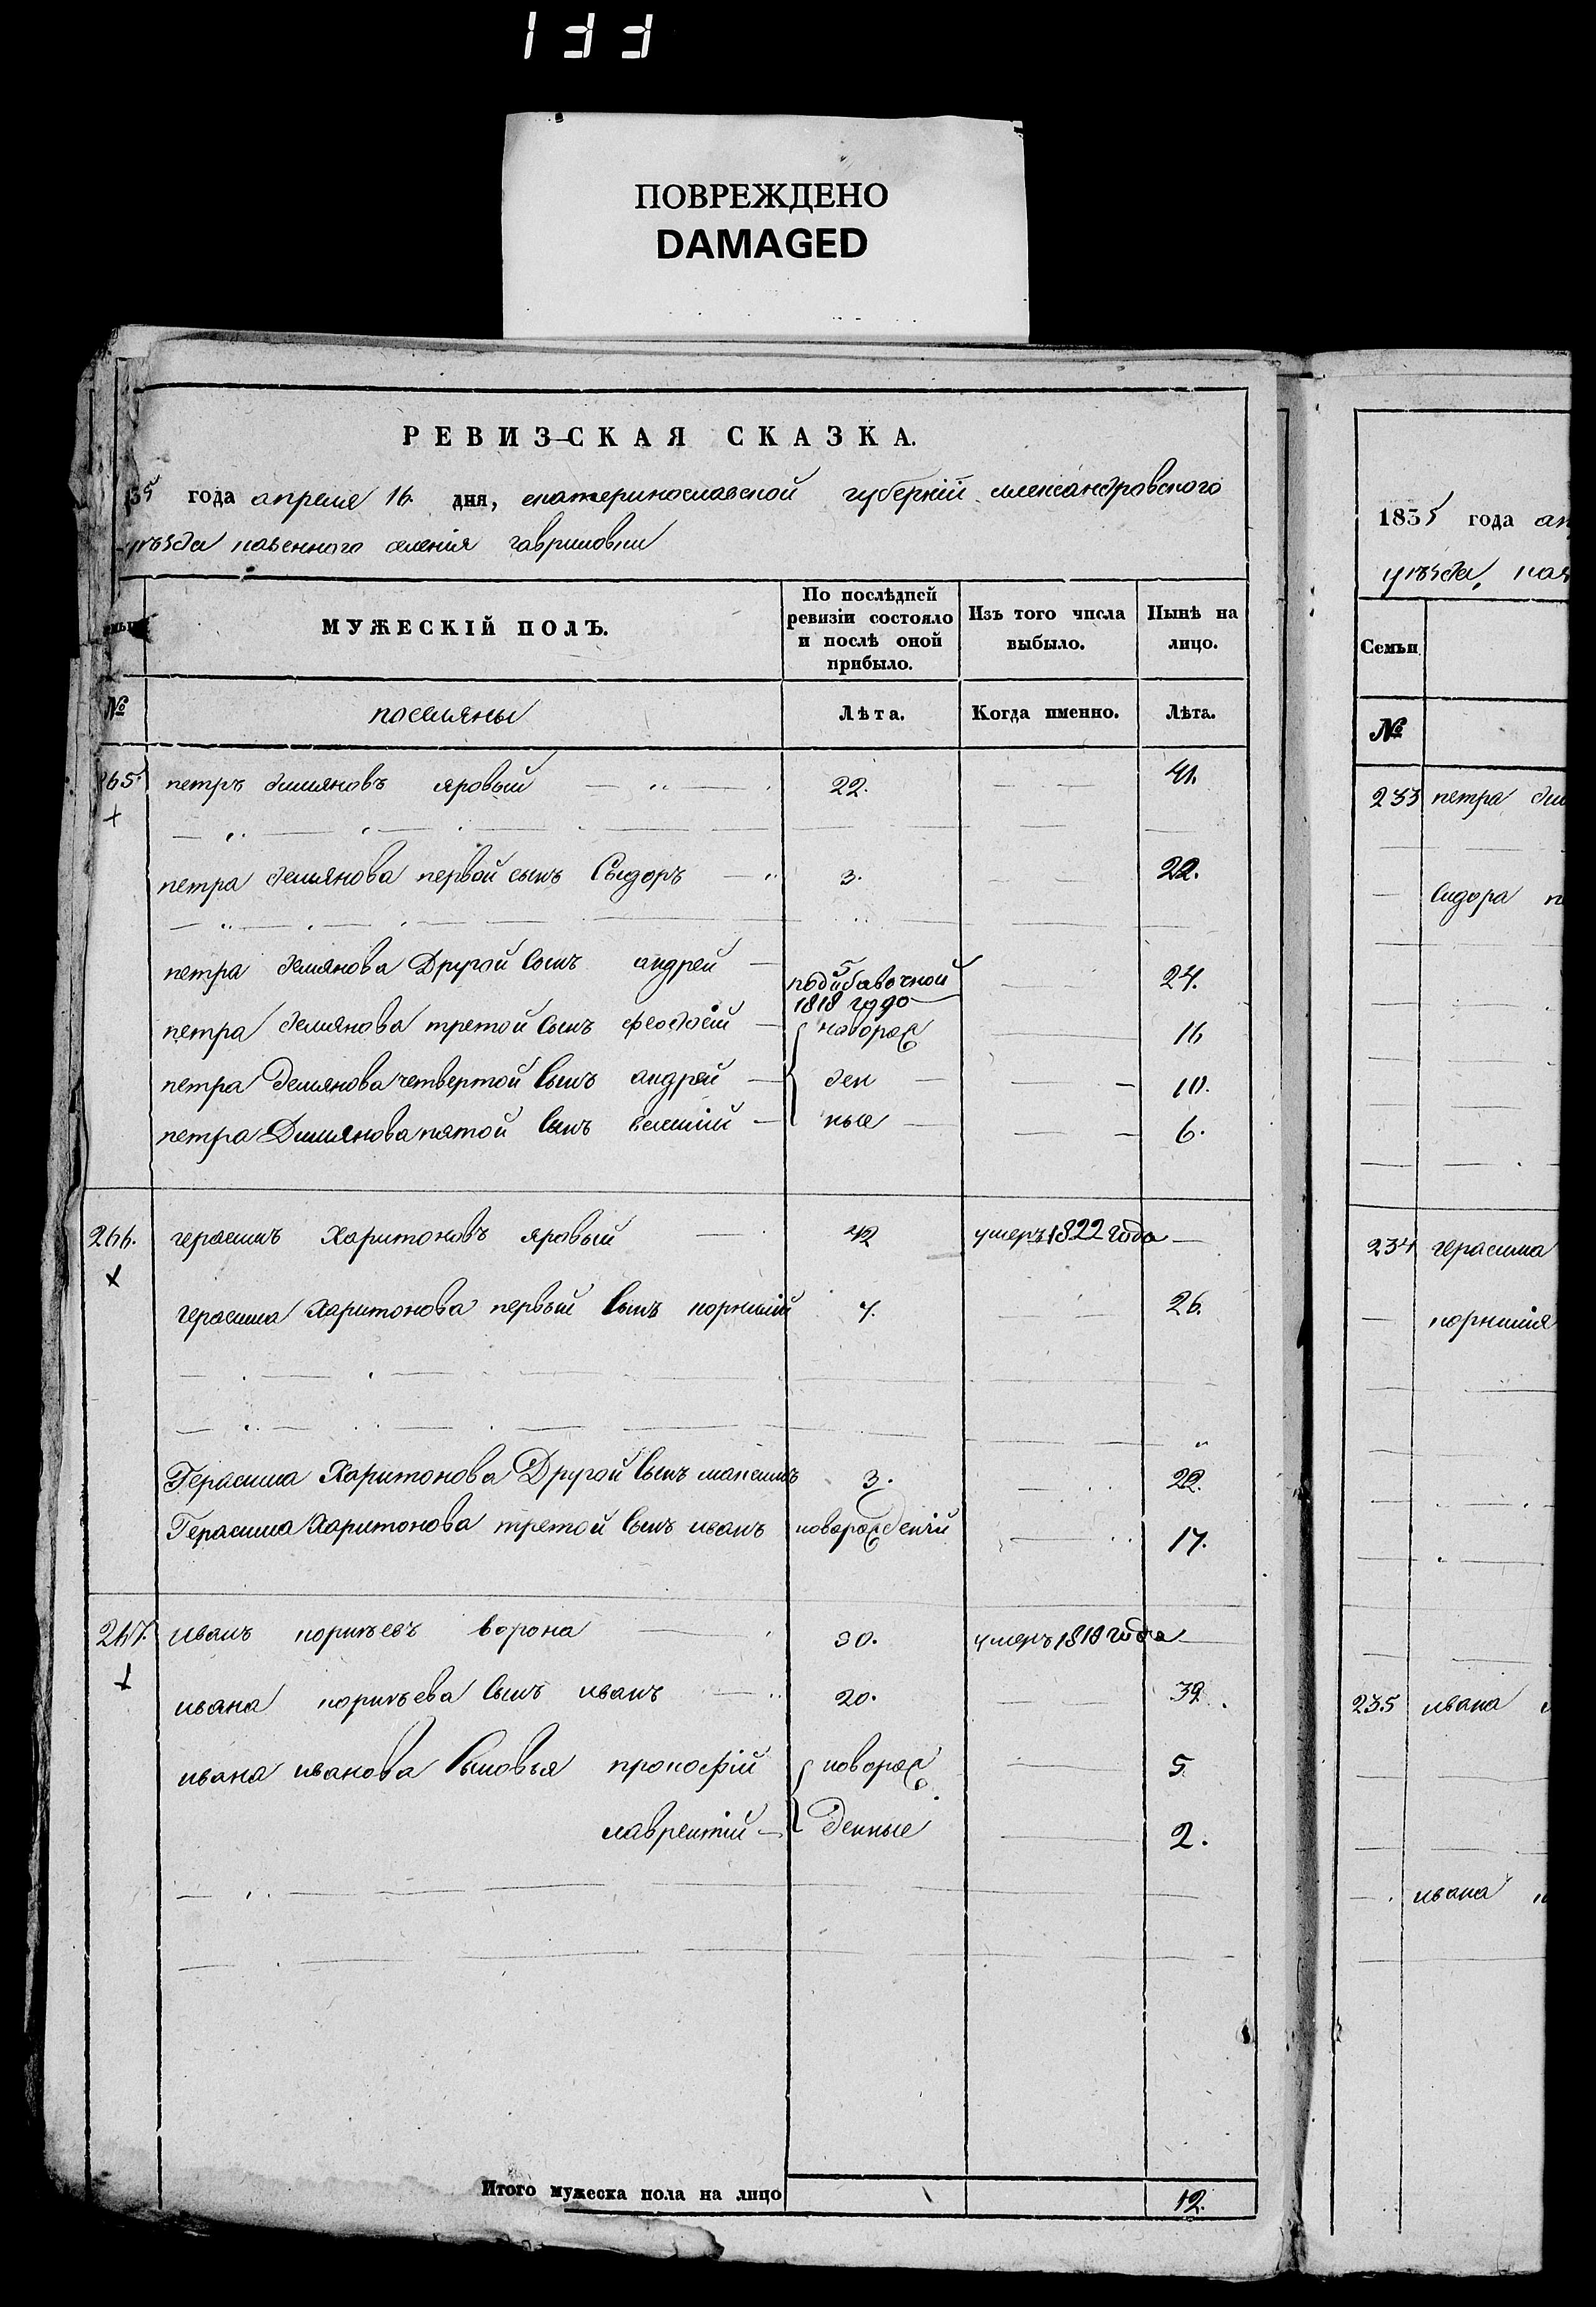 133
ПОВРЕЖДЕНО
DAMAGED
РЕВИЗСКАЯ СКАЗКА.
35 года апреля 16. дня, екатеринославской губернїи александровского
уѣзда казенного селенїя гавриловки
МУЖЕСКІЙ ПОЛЪ.
По послѣдней ревизіи состояло и послѣ оной прибыло.
Изъ того числа выбыло.
Нынѣ на лицо.
№ поселяны Лѣта. Когда именно. Лѣта.
265. петръ демяновъ яровый 22. 41.
петра демянова первой сынъ Сыдоръ 3. 22.
петра демянова Другой Сынъ андрей 5 24.
1818 году
петра демянова третой Сынъ феодосїй новорож 16
петра Демянова четвертой Сынъ андрей ден 10.
петра Димянова пятой Сынъ ные 6.
266. герасимъ Харитоновъ яровый 42 умеръ 1822 года
герасима Харитонова первый Сынъ корнилїй 7. 26.
Герасима Харитонова Другой Сынъ максимъ 3. 22.
Герасима Харитонова третой Сынъ иванъ новорожденїй 17.
267. иванъ корнѣевъ ворона умеръ 1818 года
ивана корнѣева Сынъ иванъ 20. 39.
ивана иванова Сыновья прокофїй новорож 5.
лаврентїй денные 2.
Итого мужеска пола на лицо 12.
1835 года ап
уѣзда, каз
Семьи
№
233 петра дим
Сидора п
234 герасима
корнилїя
235 ивана
ивана